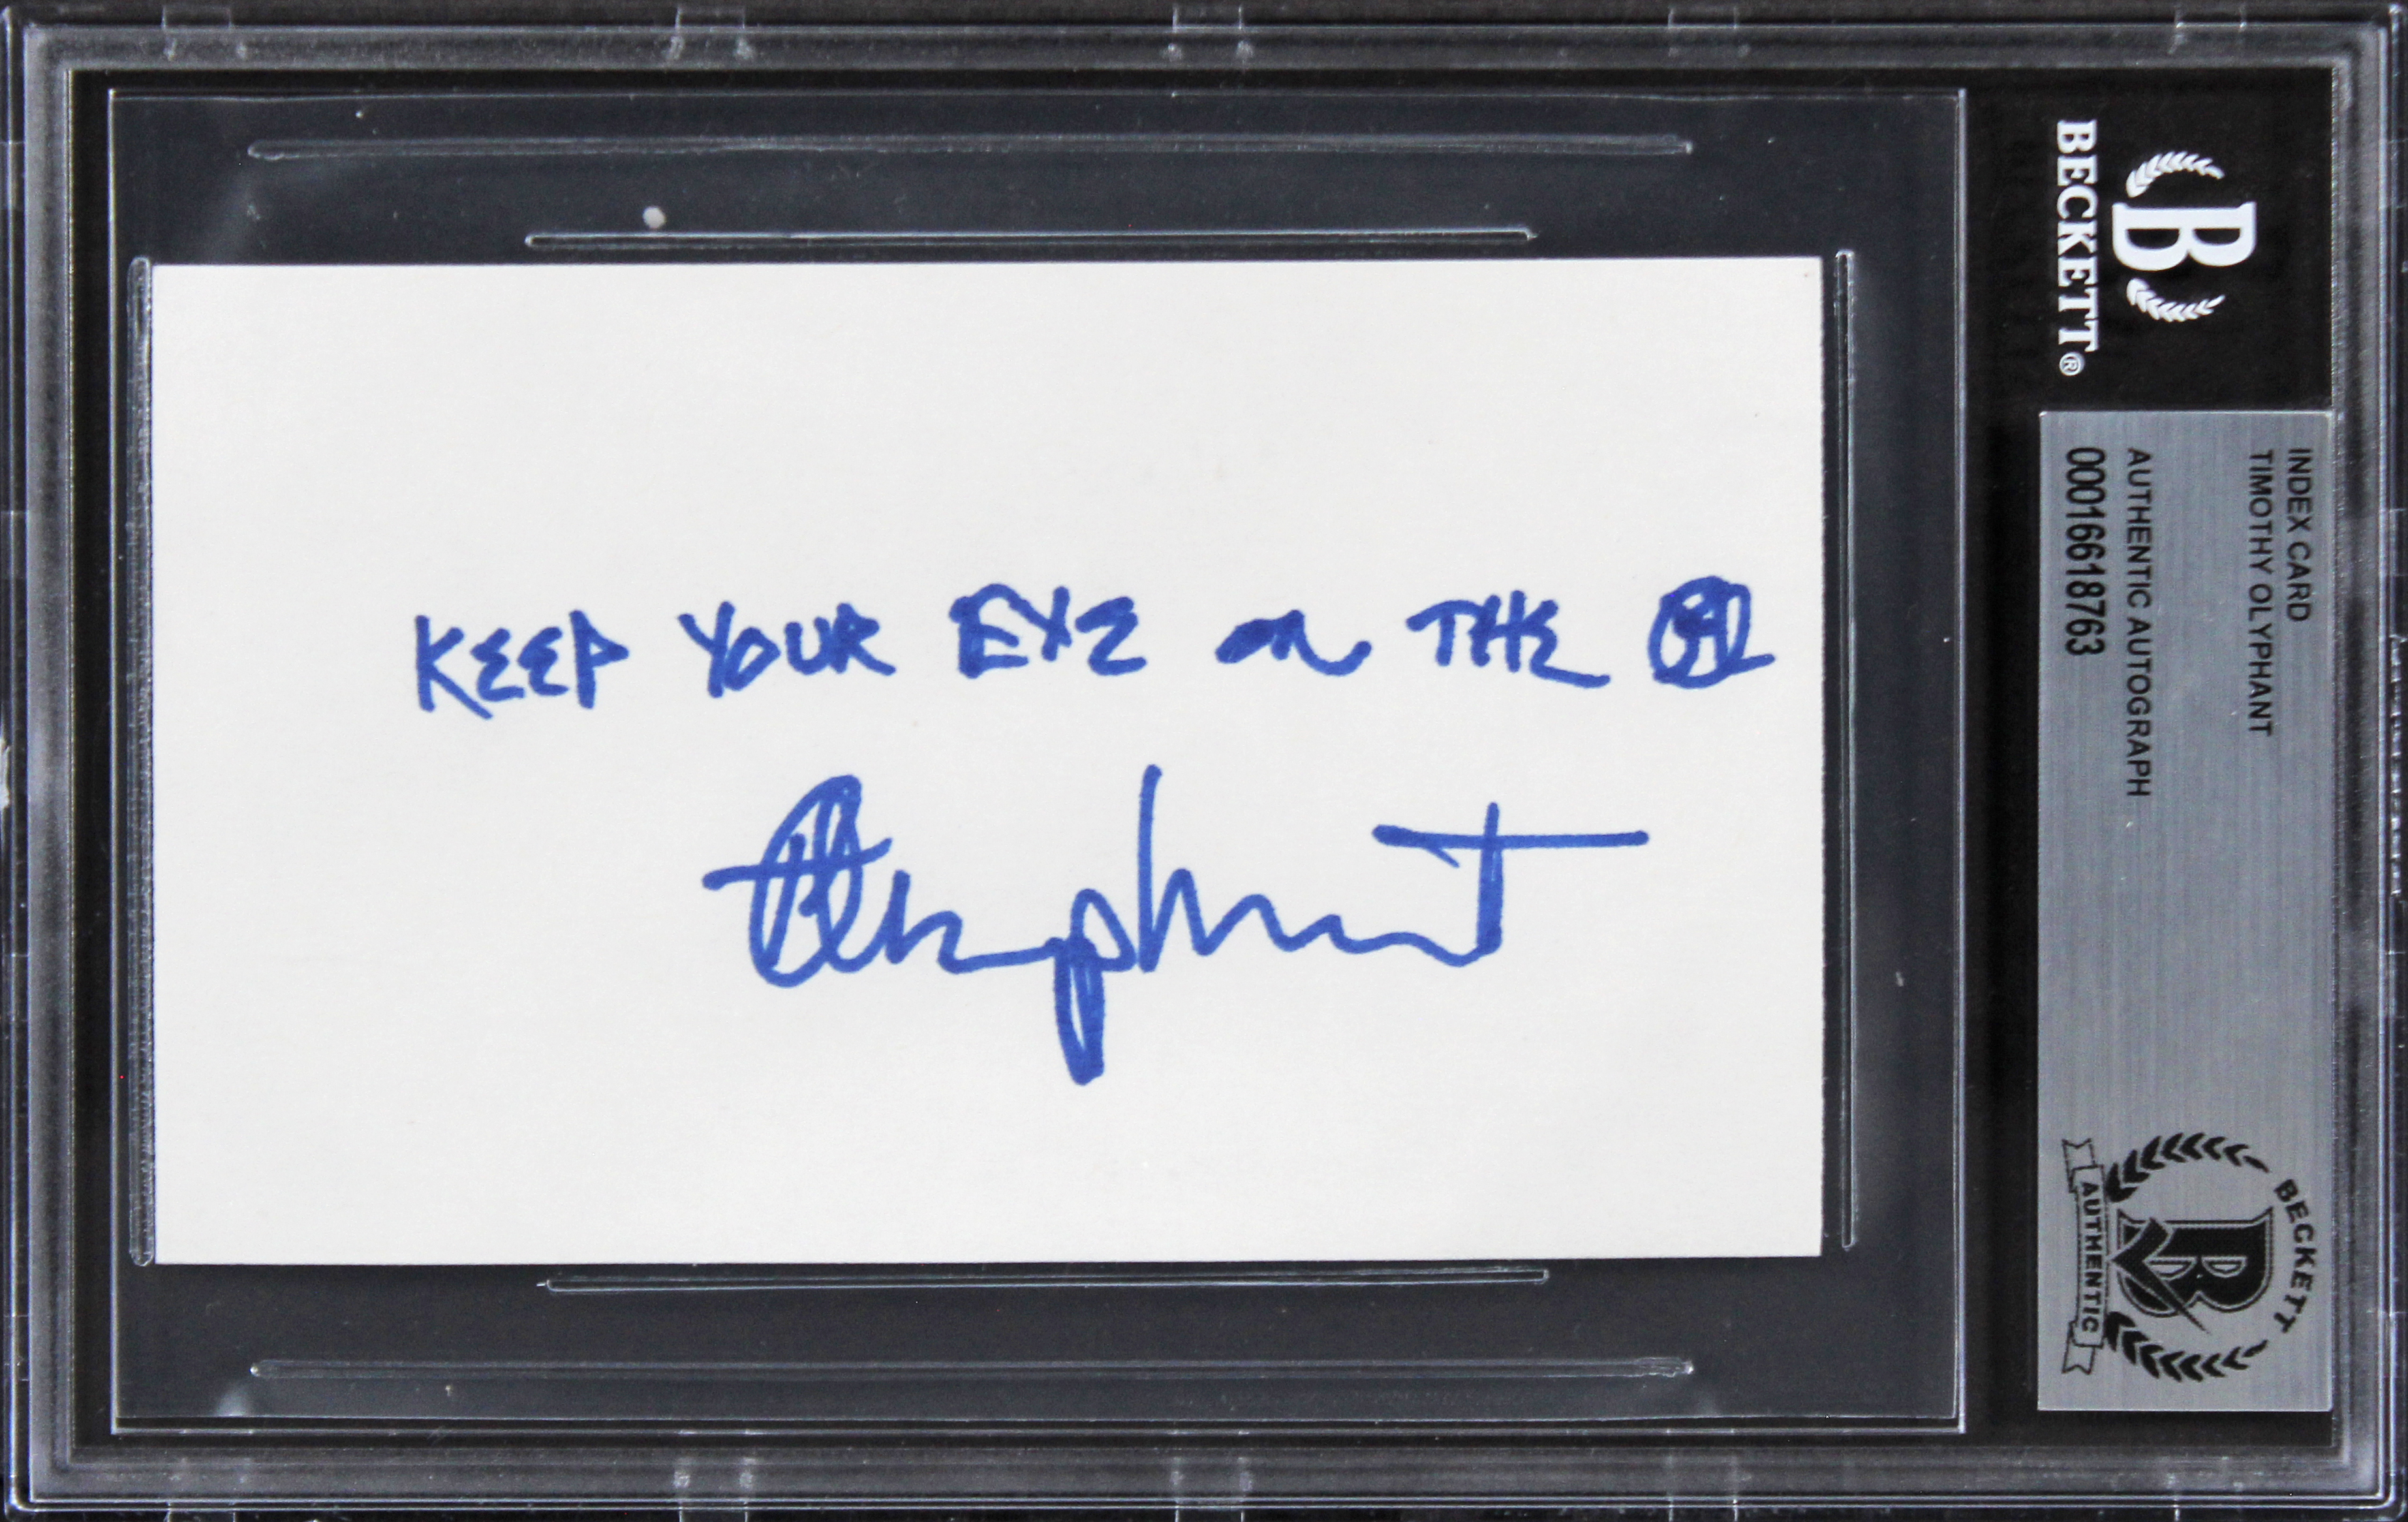 KEEP YOUR EYE on THE
Olyphant
BECKETT®
INDEX CARD
TIMOTHY OLYPHANT
AUTHENTIC AUTOGRAPH
00016618763
B
BECKETT
B
AUTHENTIC